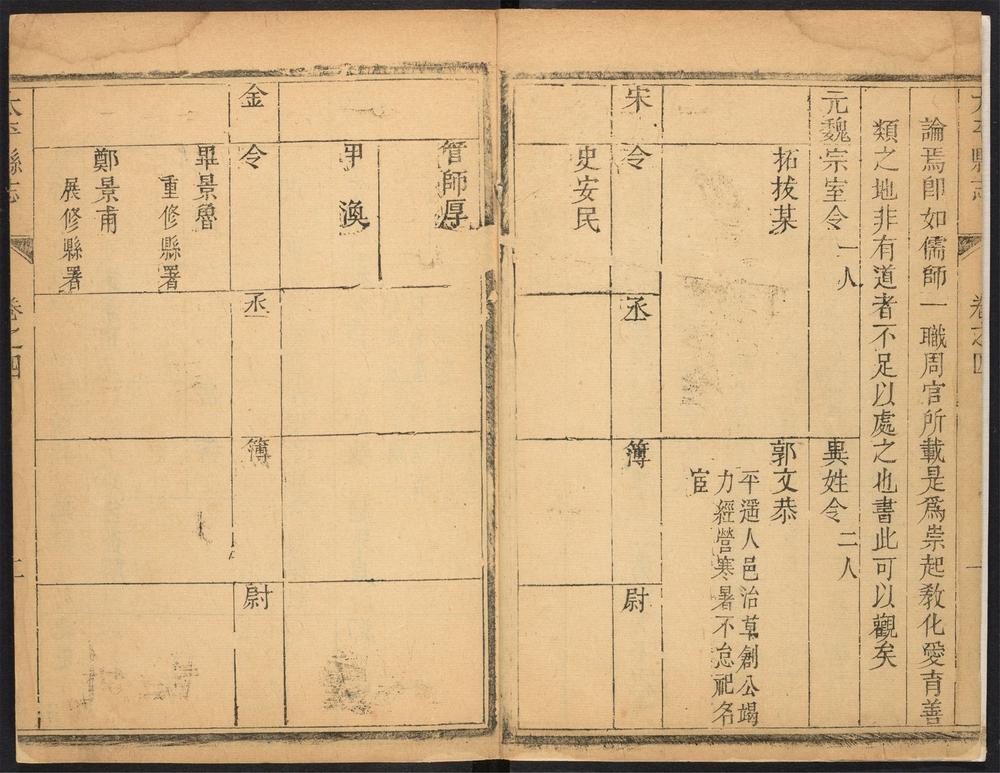 太平縣志
卷之四
一
論焉卽如儒師一職周官所載是爲崇起敎化愛育善
類之地非有道者不足以處之也書此可以觀矣
元魏宗室令一人
異姓令二人
拓拔某
郭文恭
平遥人邑治草創公竭
力經營寒暑不怠祀名
宦
宋
令
丞
簿
尉
史安民
管師厚
渙
金
令
丞
簿
尉
畢景魯
重修縣署
鄭景甫
展修縣署
太平縣志
卷之四
二